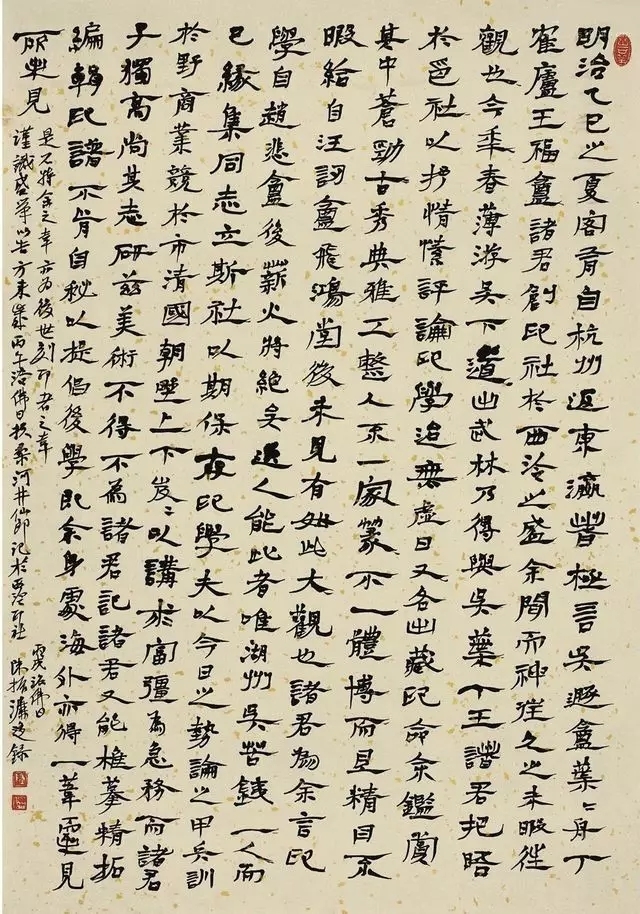 明治乙巳之夏客有自杭州返東瀛者極言吳遯盦葉〻舟丁
隺廬王福盦諸君創印社於西泠之盛余聞而神往久之未暇往
觀也今年春薄游吳下道出武林乃得與吳葉丁王諸君把晤
於是社以抒情愫評論印學迨無虛日又各出藏印命余鑑賞
其中蒼勁古秀典雅工整人不一家篆不一體博而且精目不
暇給自汪訒盦飛鴻堂後未見有如此大觀也諸君為余言印
學自趙悲盦後薪火將絕矣選人能此者唯湖州吳苦鐵一人而
已緣集同志立斯社以期保存印學夫以今日之勢論之甲兵訓
於野商業競於市清國朝野上下岌〻以講求富彊為急務而諸君
子獨高尚其志研茲美術不得不為諸君記諸君又能椎摹精拓
編輯印譜不肯自秘以提倡後學即余身處海外亦得一葦遝見
所未見
是不特余之幸亦為後世刻印者之幸
謹識盛舉以告方來歲丙午浴佛日扶桑河井仙郎記於西泠印社
丙戌浴佛日
陳振濂迻錄